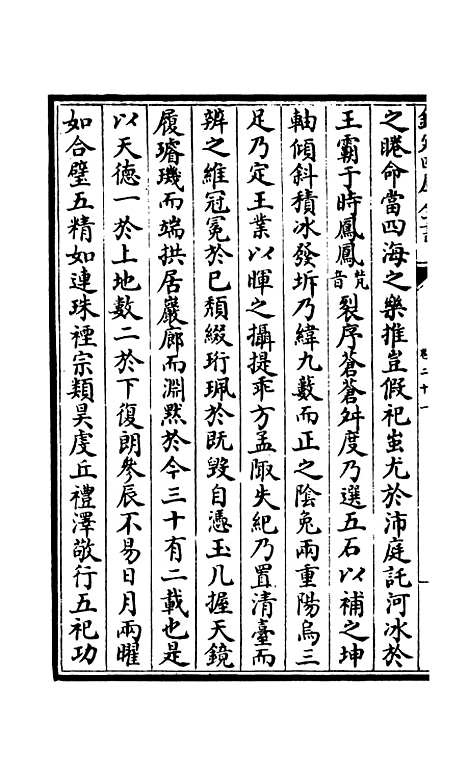 之睠命當四海之樂推豈假祀蚩尤於沛庭託河冰於
王霸于時鳳鳳音梵裂序蒼蒼舛度乃選五石以補之坤
軸傾斜積冰發坼乃緯九藪而正之陰兔兩重陽烏三
足乃定王業以暉之攝提乖方孟陬失紀乃置清臺而
辨之維冠冕於已頽綴珩珮於既毁自憑玉几握天鏡
履璿璣而端拱居巖廊而淵黙於今三十有二載也是
以天德一於上地數二於下復朗參辰不易日月兩曜
如合璧五精如連珠禋宗類昊虔丘禮澤敬行五祀功